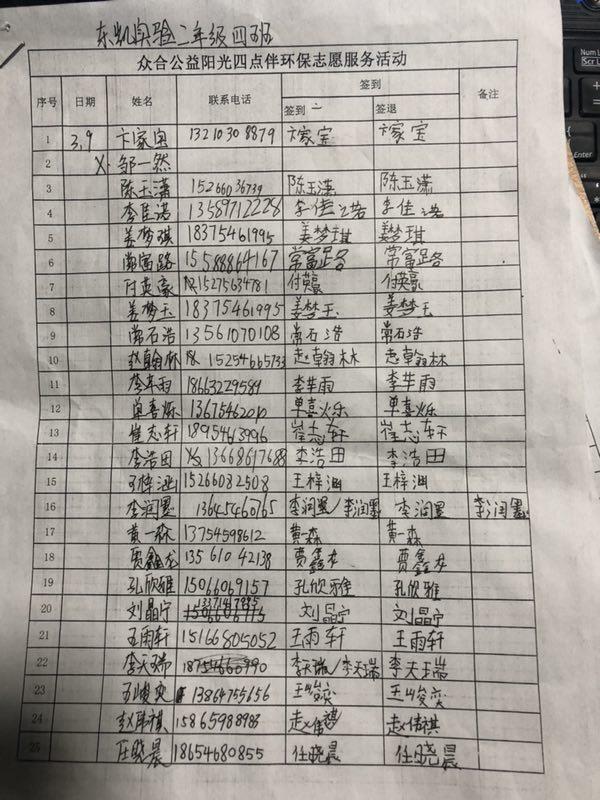 东凯实验二年级四班
众合公益阳光四点伴环保志愿服务活动
序号 日期 姓名 联系电话 签到 备注
签到 二 签退
1 3.9 卞家宝 13210308879 卞家宝 卞家宝
2 X. 邹一然
3 陈玉潇 15266036739 陈玉潇 陈玉潇
4 李佳诺 13589712228 李佳诺 李佳诺
5 姜梦琪 18375461995 姜梦琪 姜梦琪
6 常富路 15588864167 常富路 常富路
7 付英豪 15275634781 付英豪 付英豪
8 姜梦玉 18375461995 姜梦玉 姜梦玉
9 常石浩 13561070108 常石浩 常石浩
10 赵翰林 15254665733 赵翰林 赵翰林
11 李芊雨 18663229589 李芊雨 李芊雨
12 单喜烁 单喜烁 单喜烁
13 崔志轩 18954613996 崔志轩 崔志轩
14 李浩田 13668617688 李浩田 李浩田
15 王梓涵 15266082508 王梓涵 王梓涵
16 李润墨 13645460765 李润墨 李润墨 李润墨 李润墨
17 黄一森 13754598612 黄一森 黄一森
18 贾鑫龙 13561042138 贾鑫龙 贾鑫龙
19 孔欣雅 15066069157 孔欣雅 孔欣雅
20 刘晶宁 刘晶宁 刘晶宁
21 王雨轩 15166805052 王雨轩 王雨轩
22 李天瑞 18754660990 李天瑞 李天瑞 李天瑞
23 王峻奕 13864755656 王峻奕 王峻奕
24 赵倩祺 15865988983 赵倩祺 赵倩祺
25 任晓晨 18654680855 任晓晨 任晓晨